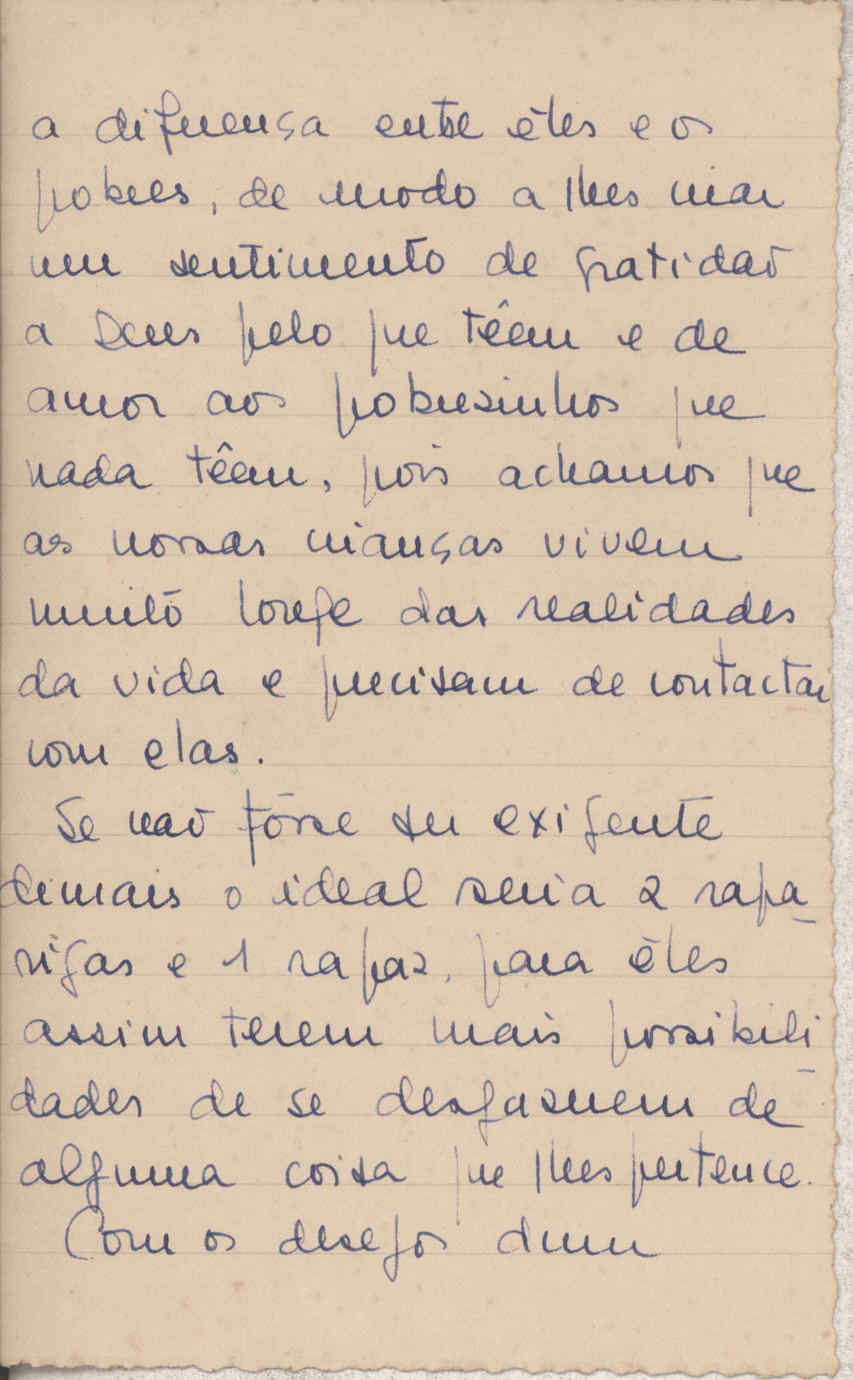 a diferença entre êles e os
pobres, de modo a lhes criar
um sentimento de gratidaõ
a Deus pelo que têem e de
amor aos pobresinhos que
nada têem, pois achamos que
as nossas crianças vivem
muito longe das realidades
da vida e precisam de contactar
com elas.
Se naõ fôsse ser exigente
demais o ideal seria 2 rapa-
rigas e 1 rapaz, para êles
assim terem mais possibili-
dades de se desfazerem de
alguma coisa que lhes pertence.
Com os desejos dum